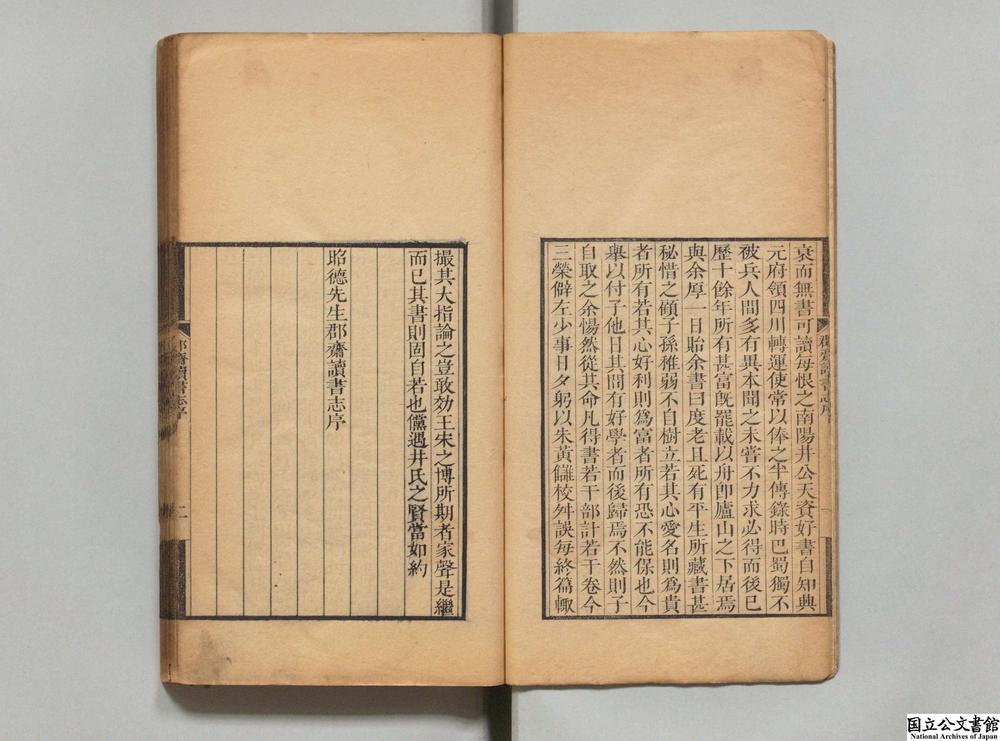 裒而無書可讀每恨之南陽井公天資好書自知興
元府領四川轉運使常以俸之半傳錄時巴蜀獨不
被兵人間多有異本聞之未嘗不力求必得而後已
歷十餘年所有甚富旣罷載以舟卽廬山之下居焉
與余厚一日貽余書曰度老且死有平生所藏書甚
秘惜之顧子孫稚弱不自樹立若其心愛名則爲貴
者所有若其心好利則爲富者所有恐不能保也今
舉以付子他日其間有好學者而後歸焉不然則子
自取之余惕然從其命凡得書若干部計若干卷今
三榮僻左少事日夕躬以朱黃讎校舛誤每終篇輙
郡齋讀書志序
撮其大指論之豈敢効王宋之博所期者家聲是繼
而已其書則固自若也儻遇井氏之賢當如約
昭德先生郡齋讀書志序
郡齋讀書志序
二
国立公文書館
National Archives of Japan